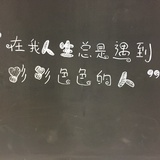 "在我人生总是遇到
形形色色的人"